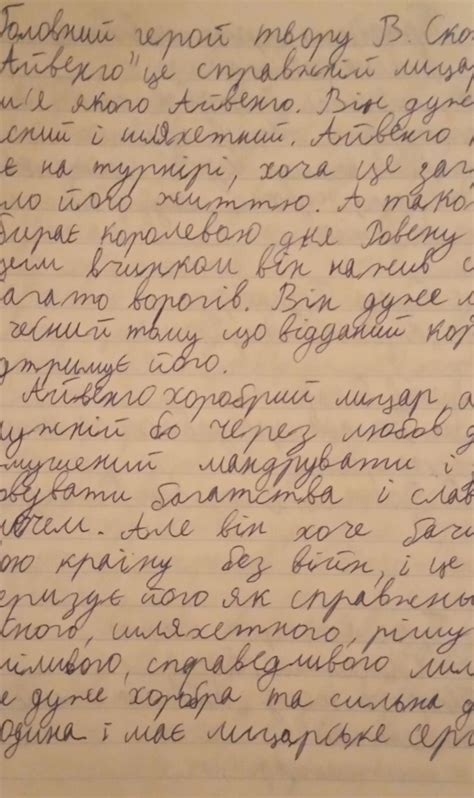 Головний герой твору В. Ско
Айвенго" це справжній лицар
м'я якого Айвенго. Він дуже
сний і шляхетний. Айвенго
є на турнірі, хоча це заг
ло його життю. А тако
бирає королевою дня Ровену
цим вчинком він нажив с
агато ворогів. Він дуже м
чесний тому що відданий кор
дтримує його.
Айвенго хоробрий лицар, а
мужній бо через любов д
мушений мандрувати і
овувати багатства і слав
ечем. Але він хоче бачи
ою країну без війн, і це
еризує його як справжньо
ного, шляхетного, рішу
міливого, справедливого ли
е дуже хоробра та сильна д
юдина і має лицарське серц